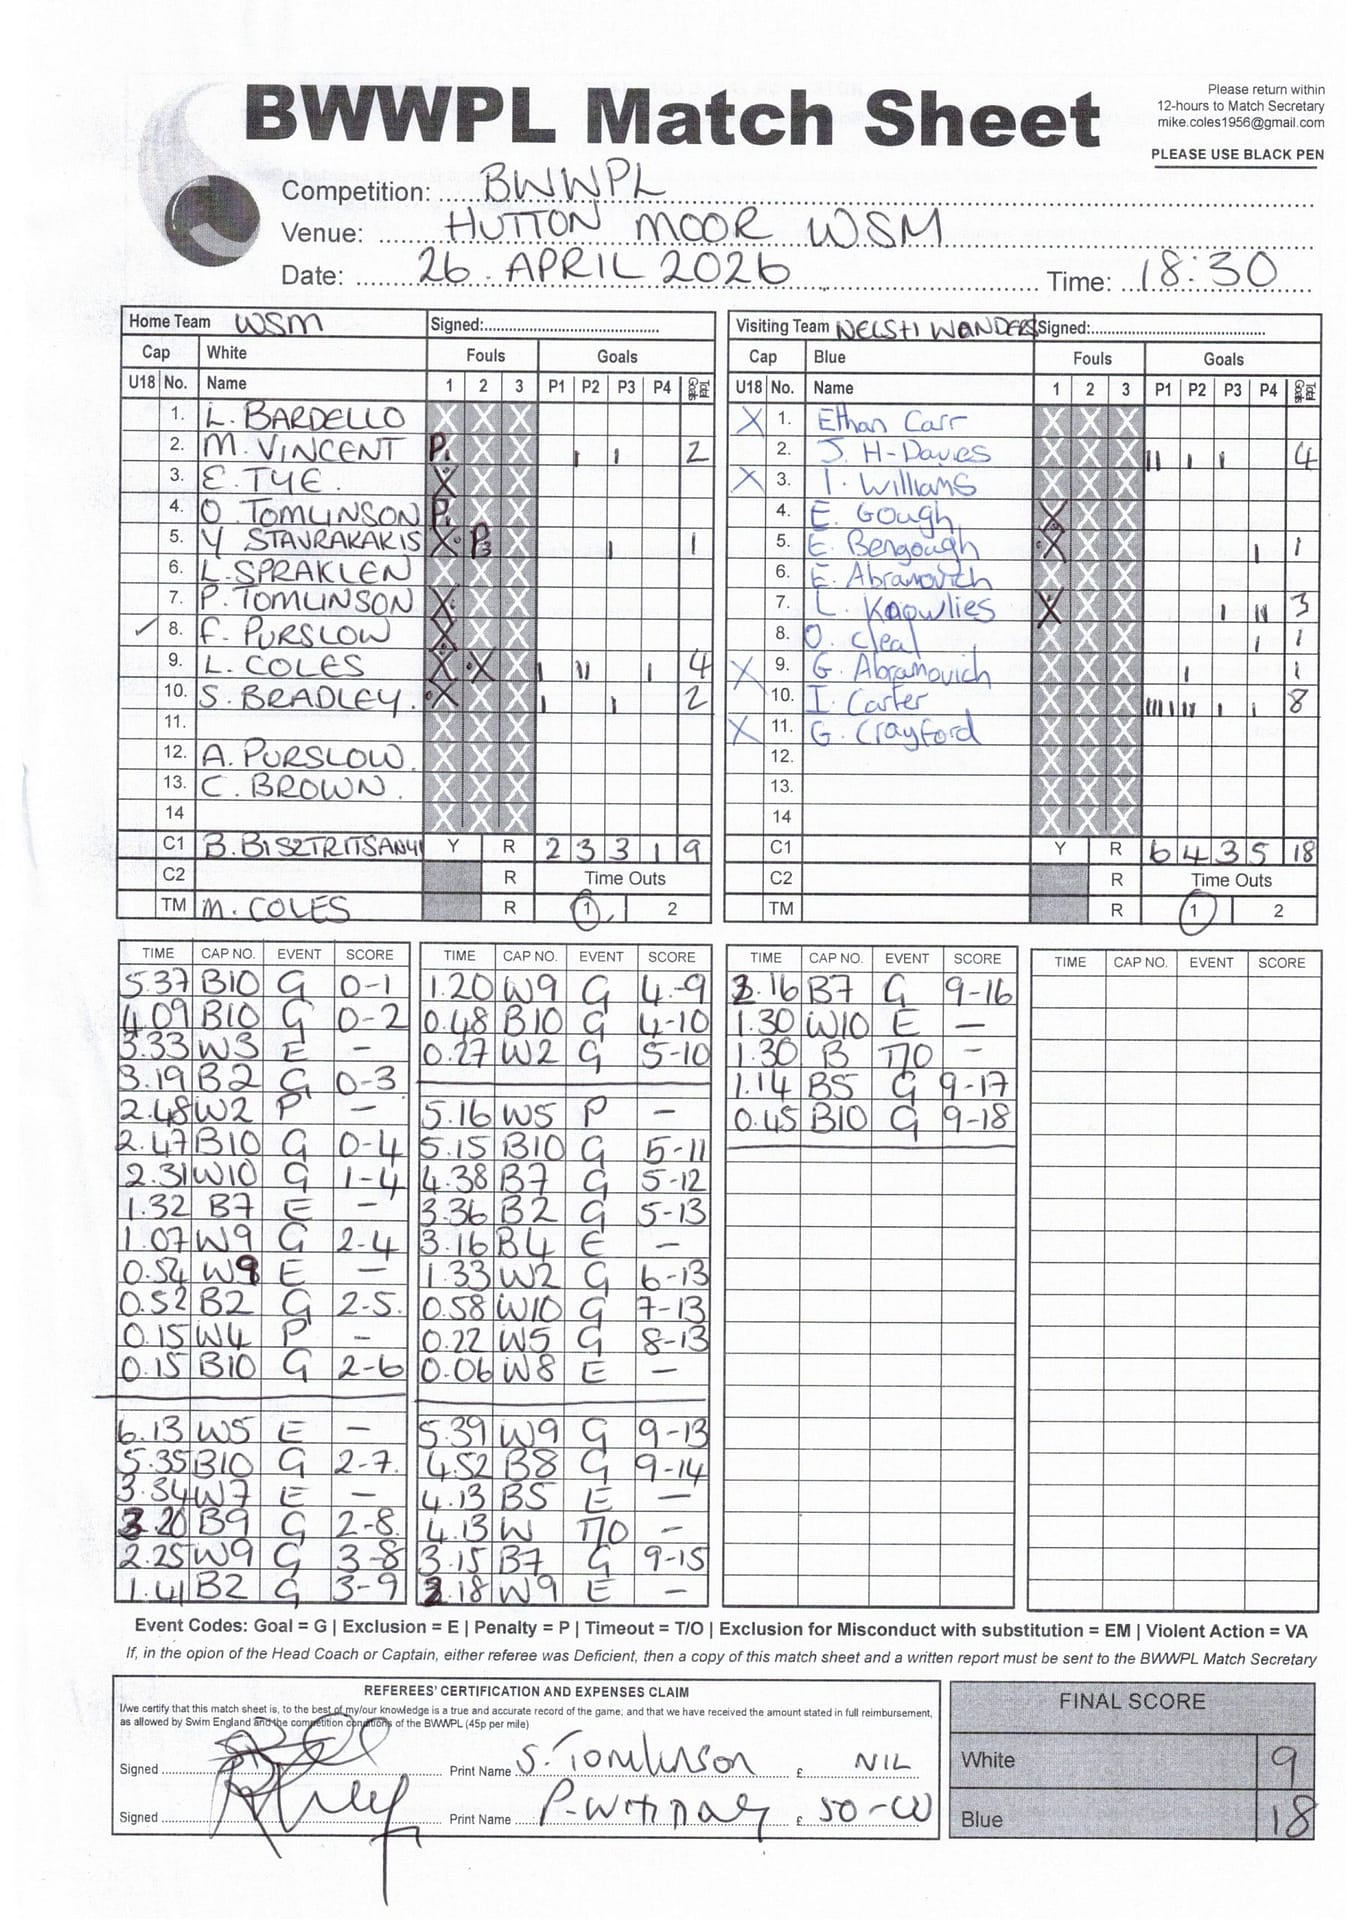 BWWPL Match Sheet
Please return within
12-hours to Match Secretary
mike.coles1956@gmail.com
PLEASE USE BLACK PEN
Competition: BWWPL
Venue: HUTTON MOOR WSM
Date: 26. APRIL 2026 Time: 18:30
Home Team WSM Signed:
Cap White Fouls Goals
U18 No. Name 1 2 3 P1 P2 P3 P4 Total Goals
1. L. BARDELLO X X X
2. M. VINCENT P. X X I I 2
3. E. TYE. X X X
4. O. TOMLINSON P. X X
5. Y STAVRAKAKIS X P3 X I 1
6. L. SPRAKLEN X X X
7. P. TOMLINSON X X X
✓ 8. F. PURSLOW X X X
9. L. COLES X X X I II I 4
10. S. BRADLEY. X X X I I 2
11. X X X
12. A. PURSLOW. X X X
13. C. BROWN. X X X
14 X X X
C1 B. BISZTRITSANYI Y R 2 3 3 1 9
C2 R Time Outs
TM M. COLES R 1 2
Visiting Team NELSTI WANDERS Signed:
Cap Blue Fouls Goals
U18 No. Name 1 2 3 P1 P2 P3 P4 Total Goals
X 1. Ethan Carr X X X
2. J. H-Davies X X X II I I 4
X 3. I. Williams X X X
4. E. Gough X X X
5. E. Bengough X X X I 1
6. E. Abramovich X X X
7. L. Knowlies X X X I II 3
8. O. Cleal X X X I 1
X 9. G. Abramovich X X X I 1
10. I. Carter X X X IIII II I I 8
X 11. G. Crayford X X X
12. X X X
13. X X X
14 X X X
C1 Y R 6 4 3 5 18
C2 R Time Outs
TM R 1 2
TIME CAP NO. EVENT SCORE
5.37 B10 G 0-1
4.09 B10 G 0-2
3.33 W3 E -
3.19 B2 G 0-3
2.48 W2 P -
2.47 B10 G 0-4
2.31 W10 G 1-4
1.32 B7 E -
1.07 W9 G 2-4
0.54 W9 E -
0.52 B2 G 2-5.
0.15 W4 P -
0.15 B10 G 2-6
6.13 W5 E -
5.35 B10 G 2-7.
3.34 W7 E -
3.20 B9 G 2-8.
2.25 W9 G 3-8
1.41 B2 G 3-9
TIME CAP NO. EVENT SCORE
1.20 W9 G 4-9
0.48 B10 G 4-10
0.27 W2 G 5-10
5.16 W5 P -
5.15 B10 G 5-11
4.38 B7 G 5-12
3.36 B2 G 5-13
3.16 B4 E -
1.33 W2 G 6-13
0.58 W10 G 7-13
0.22 W5 G 8-13
0.06 W8 E -
5.39 W9 G 9-13
4.52 B8 G 9-14
4.13 B5 E -
4.13 W T/O -
3.15 B7 G 9-15
2.18 W9 E -
TIME CAP NO. EVENT SCORE
2.16 B7 G 9-16
1.30 W10 E -
1.30 B T/O -
1.14 B5 G 9-17
0.45 B10 G 9-18
TIME CAP NO. EVENT SCORE
Event Codes: Goal = G | Exclusion = E | Penalty = P | Timeout = T/O | Exclusion for Misconduct with substitution = EM | Violent Action = VA
If, in the opion of the Head Coach or Captain, either referee was Deficient, then a copy of this match sheet and a written report must be sent to the BWWPL Match Secretary
REFEREES' CERTIFICATION AND EXPENSES CLAIM
I/we certify that this match sheet is, to the best of my/our knowledge is a true and accurate record of the game, and that we have received the amount stated in full reimbursement,
as allowed by Swim England and the competition conditions of the BWWPL (45p per mile)
Signed Print Name S. Tomlinson £ NIL
Signed Print Name £ 50-00
FINAL SCORE
White 9
Blue 18